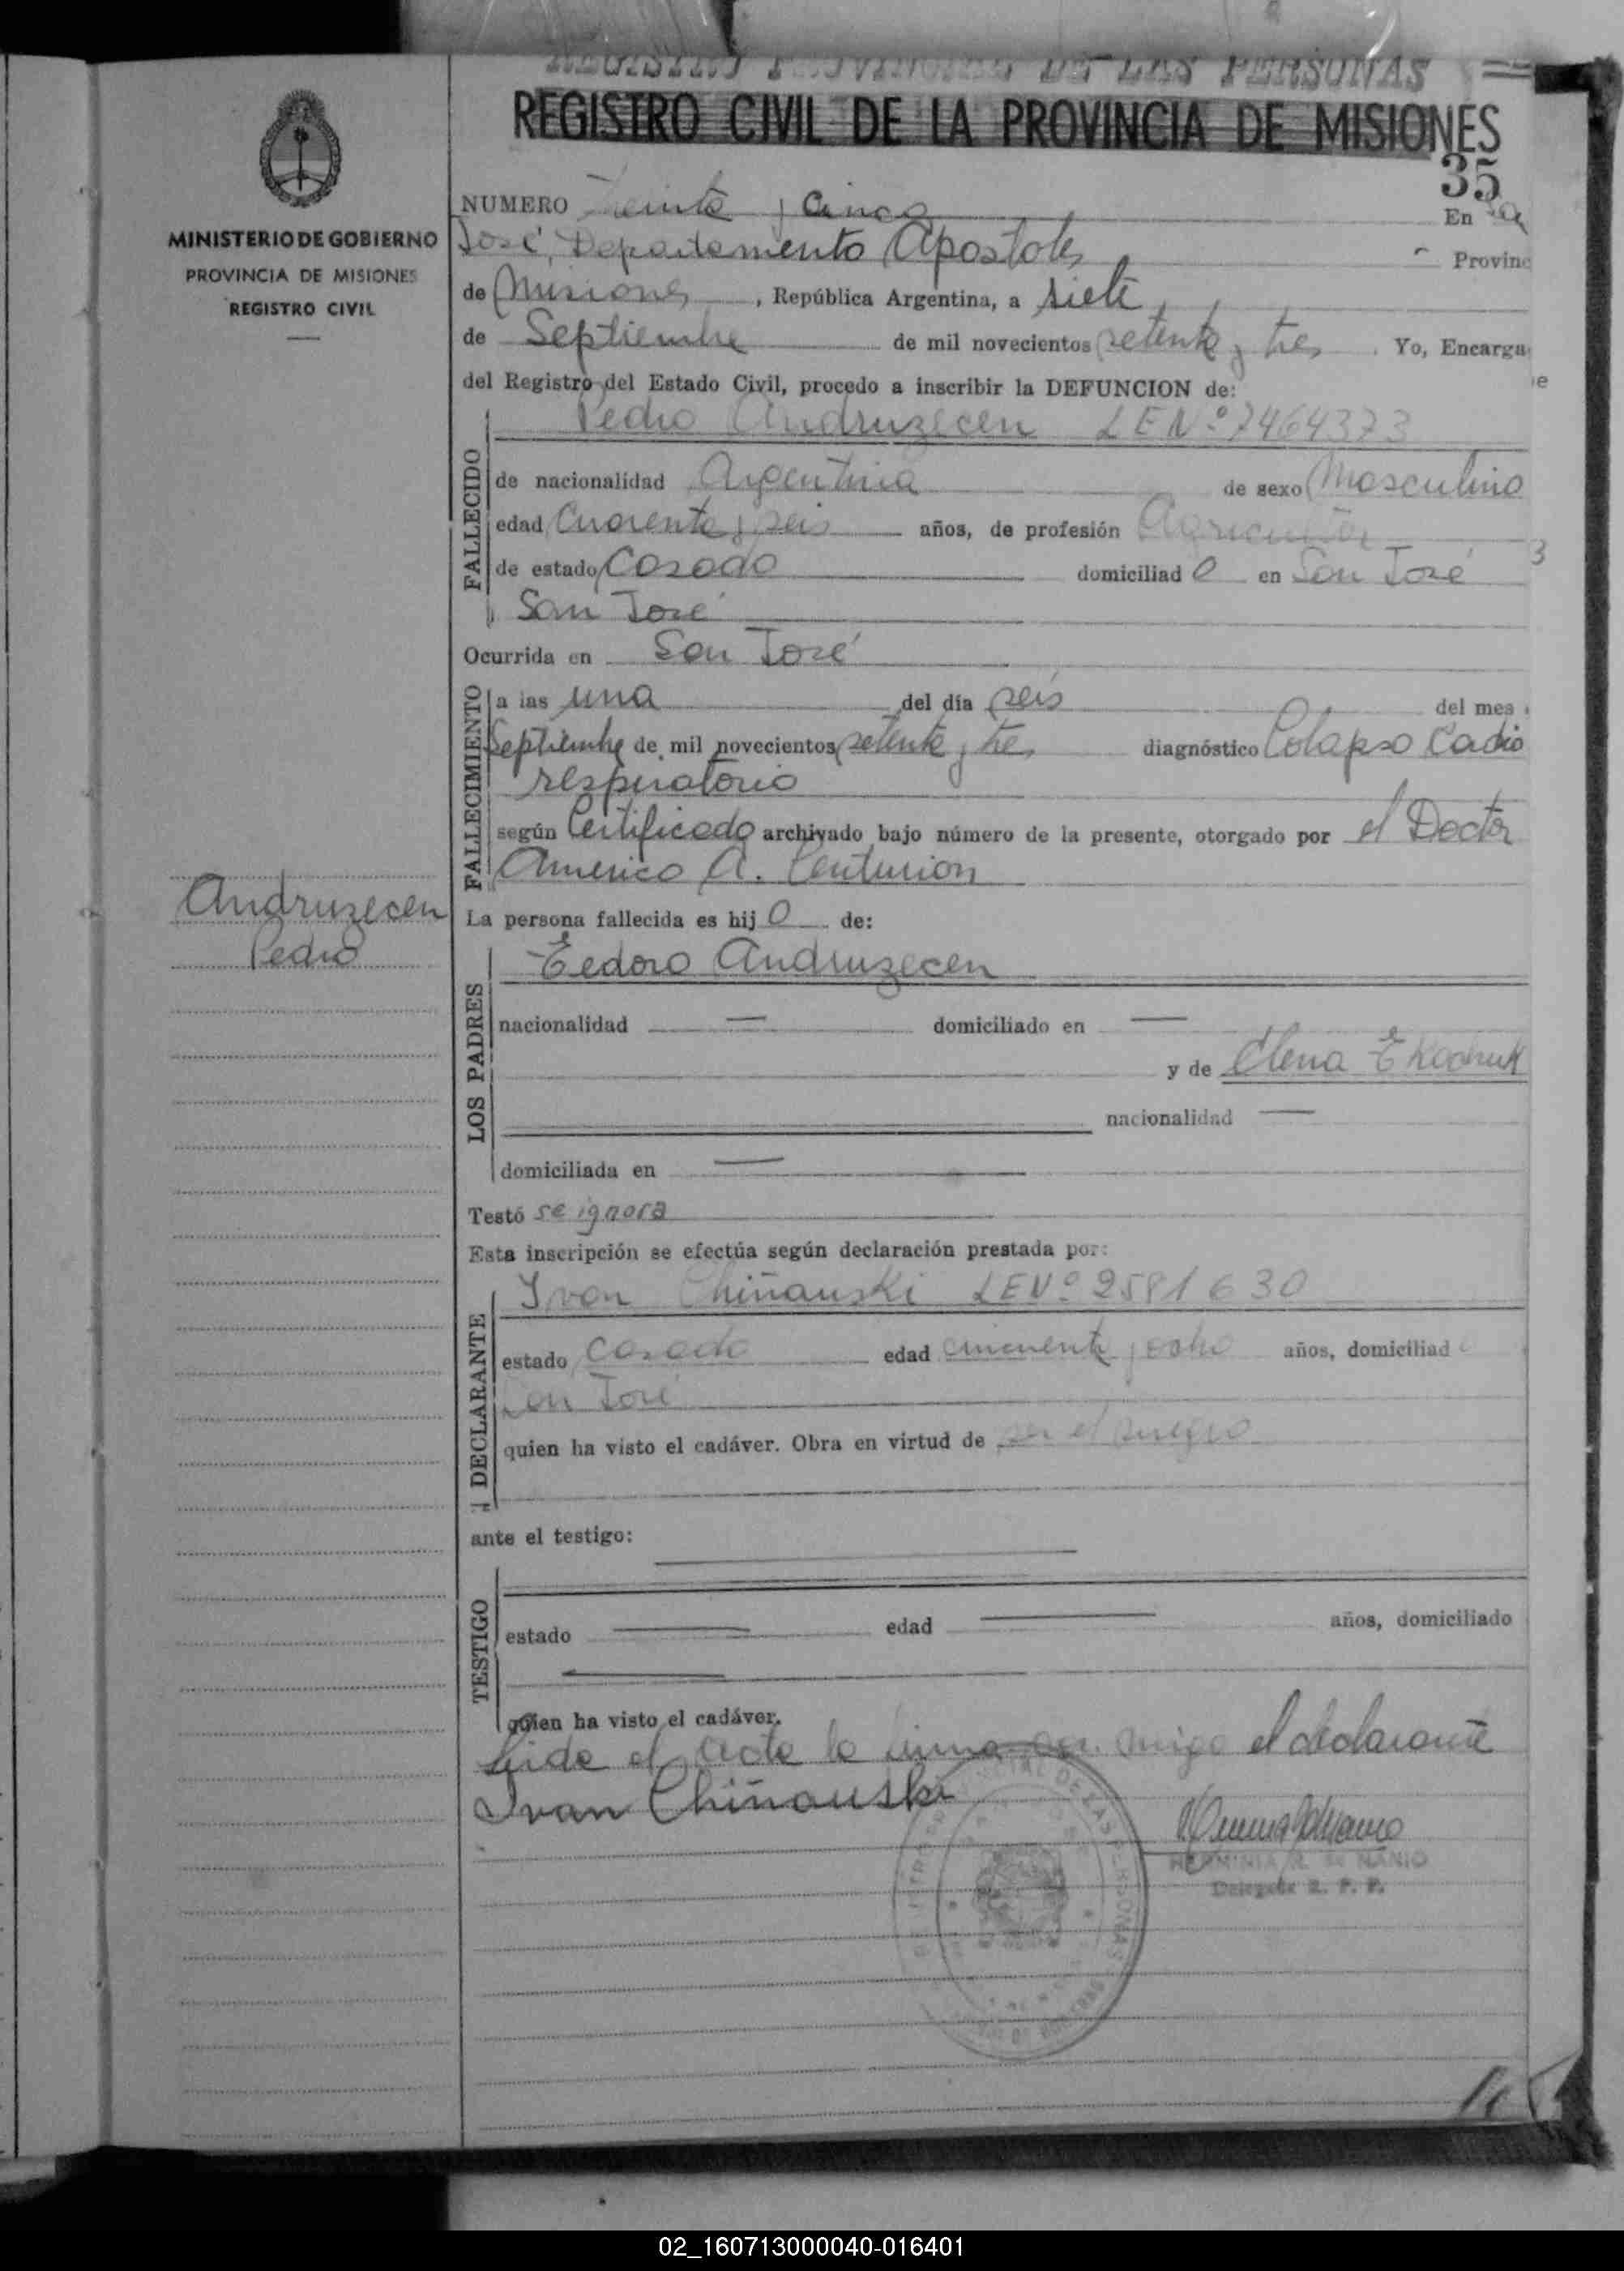 REGISTRO PROVINCIAL DE LAS PERSONAS
REGISTRO CIVIL DE LA PROVINCIA DE MISIONES
35
MINISTERIO DE GOBIERNO
PROVINCIA DE MISIONES
REGISTRO CIVIL
NUMERO Treinta y Cinco En
José, Departamento Apostoles Provinc
de Misiones, República Argentina, a siete
de Septiembre de mil novecientos setenta y tres. Yo, Encarga
del Registro del Estado Civil, procedo a inscribir la DEFUNCION de:
Pedro Andruzecen LE Nº 7464373
FALLECIDO
de nacionalidad Argentina de sexo Masculino
edad Cuarenta y seis años, de profesión Agricultor
de estado Casado domiciliad o en San José
San José
Ocurrida en San José
FALLECIMIENTO
a las una del día seis del mes
Septiembre de mil novecientos setenta y tres diagnóstico Colapso Cadio
respiratorio
según Certificado archivado bajo número de la presente, otorgado por el Doctor
Americo A. Centurion
Andruzecen
Pedro
La persona fallecida es hij o de:
LOS PADRES
Eedoro Andruzecen
nacionalidad — domiciliado en —
y de Elena
nacionalidad —
domiciliada en —
Testó se ignora
Esta inscripción se efectúa según declaración prestada por:
DECLARANTE
Ivan Chiñauski LE Nº 2581630
estado Casado edad cincuenta y ocho años, domiciliad
San José
quien ha visto el cadáver. Obra en virtud de ser el suegro
ante el testigo:
TESTIGO
estado — edad — años, domiciliado
quien ha visto el cadáver.
Leida el acta la firma con migo el declarante
Ivan Chiñauski
HERMINIA R. de NANIO
Delegada R. P. P.
02_160713000040-016401